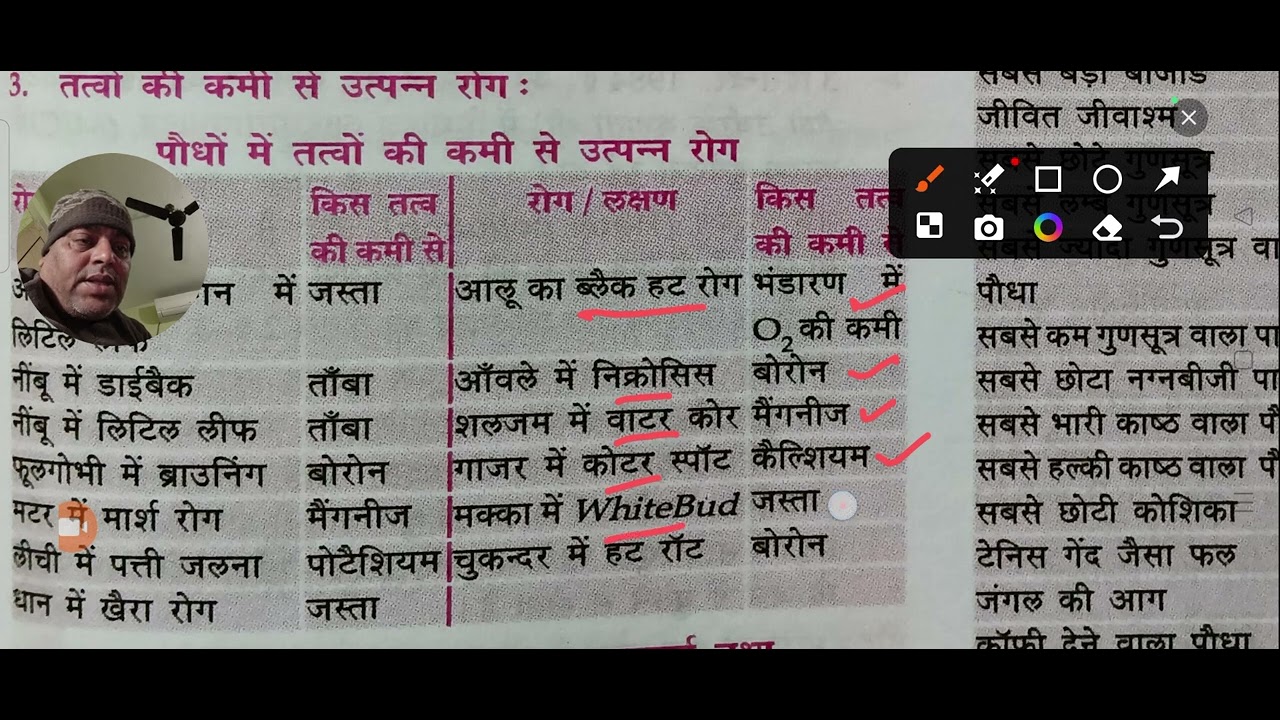 3. तत्वों की कमी से उत्पन्न रोग :
पौधों में तत्वों की कमी से उत्पन्न रोग
किस तत्व रोग / लक्षण किस तत्व
की कमी से की कमी से
में जस्ता आलू का ब्लैक हट रोग भंडारण में
लिटिल लीफ O₂ की कमी
नींबू में डाईबैक ताँबा आँवले में निक्रोसिस बोरोन
नींबू में लिटिल लीफ ताँबा शलजम में वाटर कोर मैंगनीज
फूलगोभी में ब्राउनिंग बोरोन गाजर में कोटर स्पॉट कैल्शियम
मटर में मार्श रोग मैंगनीज मक्का में WhiteBud जस्ता
लीची में पत्ती जलना पोटैशियम चुकन्दर में हट रॉट बोरोन
धान में खैरा रोग जस्ता
सबसे बड़ा बीजांड
जीवित जीवाश्म
सबसे छोटे गुणसूत्र
सबसे लम्बे गुणसूत्र
सबसे ज्यादा गुणसूत्र
पौधा
सबसे कम गुणसूत्र वाला
सबसे छोटा नग्नबीजी
सबसे भारी काष्ठ वाला
सबसे हल्की काष्ठ वाला
सबसे छोटी कोशिका
टेनिस गेंद जैसा फल
जंगल की आग
कॉफी देने वाला पौधा